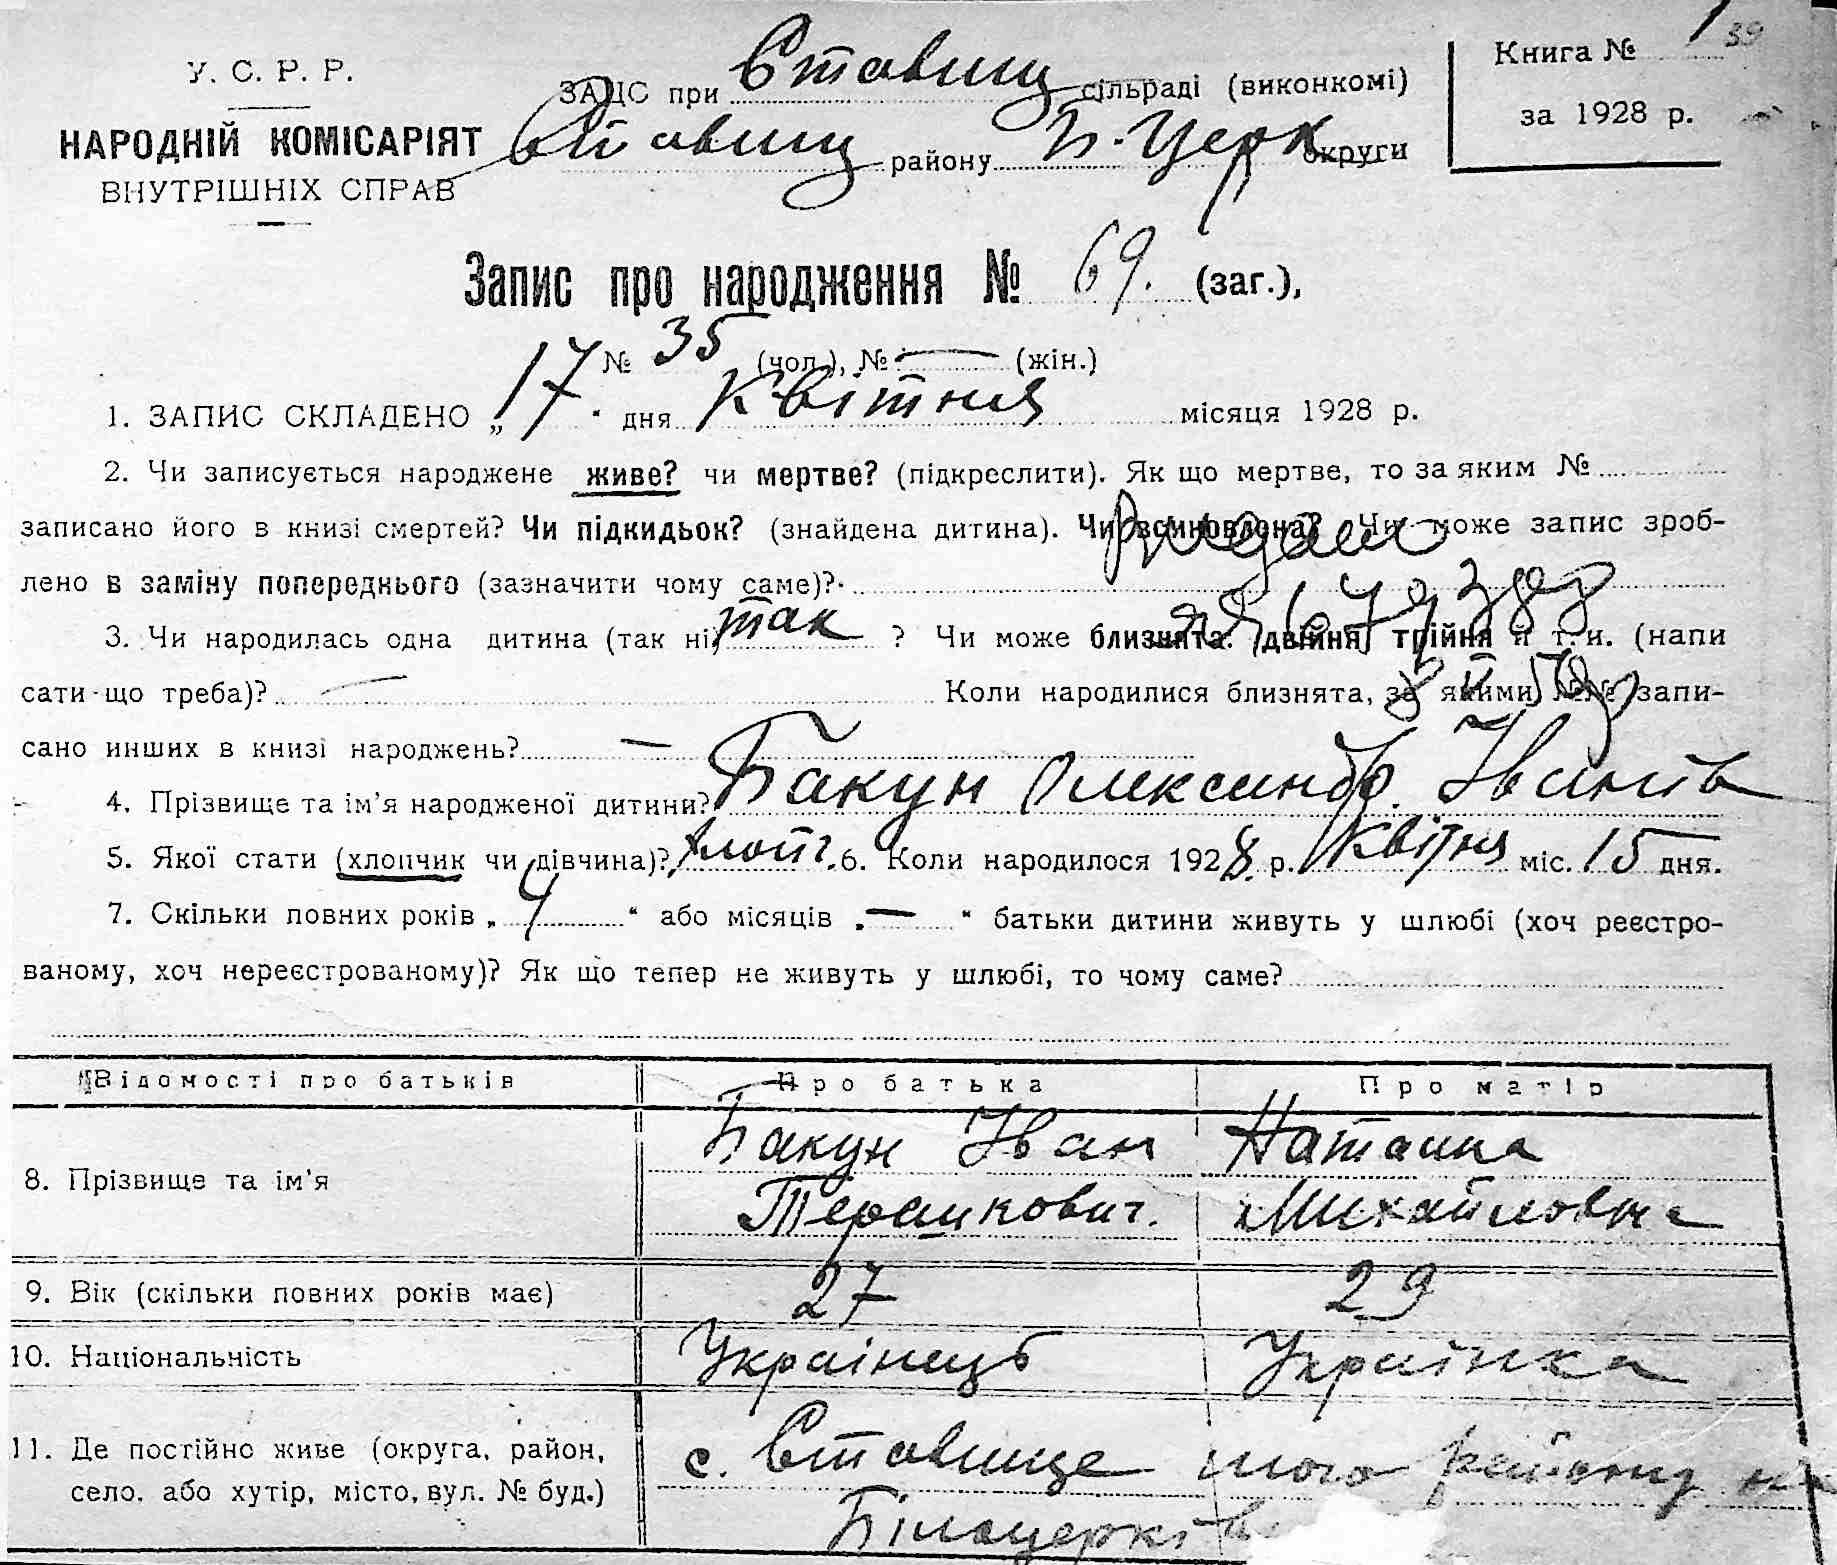 Книга № 1 39
У. С. Р. Р.
ЗАЦС при Ставищ сільраді (виконкомі)
за 1928 р.
НАРОДНІЙ КОМІСАРІЯТ
Ставищ району Б. Церк округи
ВНУТРІШНІХ СПРАВ
Запис про народження № 69. (заг.),
№ 35 (чол.), № — (жін.)
1. ЗАПИС СКЛАДЕНО „17. дня Квітня місяця 1928 р.
2. Чи записується народжене живе? чи мертве? (підкреслити). Як що мертве, то за яким №
записано його в книзі смертей? Чи підкидьок? (знайдена дитина). Чи всиновлена? Чи може запис зроб-
лено в заміну попереднього (зазначити чому саме)?
3. Чи народилась одна дитина (так ні) так ? Чи може близнята: (двійня) трійня й т. и. (напи
сати що треба)? — Коли народилися близнята, за якими №№ запи-
сано инших в книзі народжень? —
4. Прізвище та ім'я народженої дитини? Бакун Олександр. Іванів
5. Якої стати (хлопчик чи дівчина)? хлопч. 6. Коли народилося 1928. р. Квітня міс. 15 дня.
7. Скільки повних років „ 4 “ або місяців „ — “ батьки дитини живуть у шлюбі (хоч реєстро-
ваному, хоч нереєстрованому)? Як що тепер не живуть у шлюбі, то чому саме?
Відомості про батьків Про батька Про матір
8. Прізвище та ім'я Бакун Іван Наталка
Михайловна
9. Вік (скільки повних років має) 27 29
10. Національність Українець Українка
11. Де постійно живе (округа, район, с. Ставище того району на
село, або хутір, місто, вул. № буд.) Білоцеркі